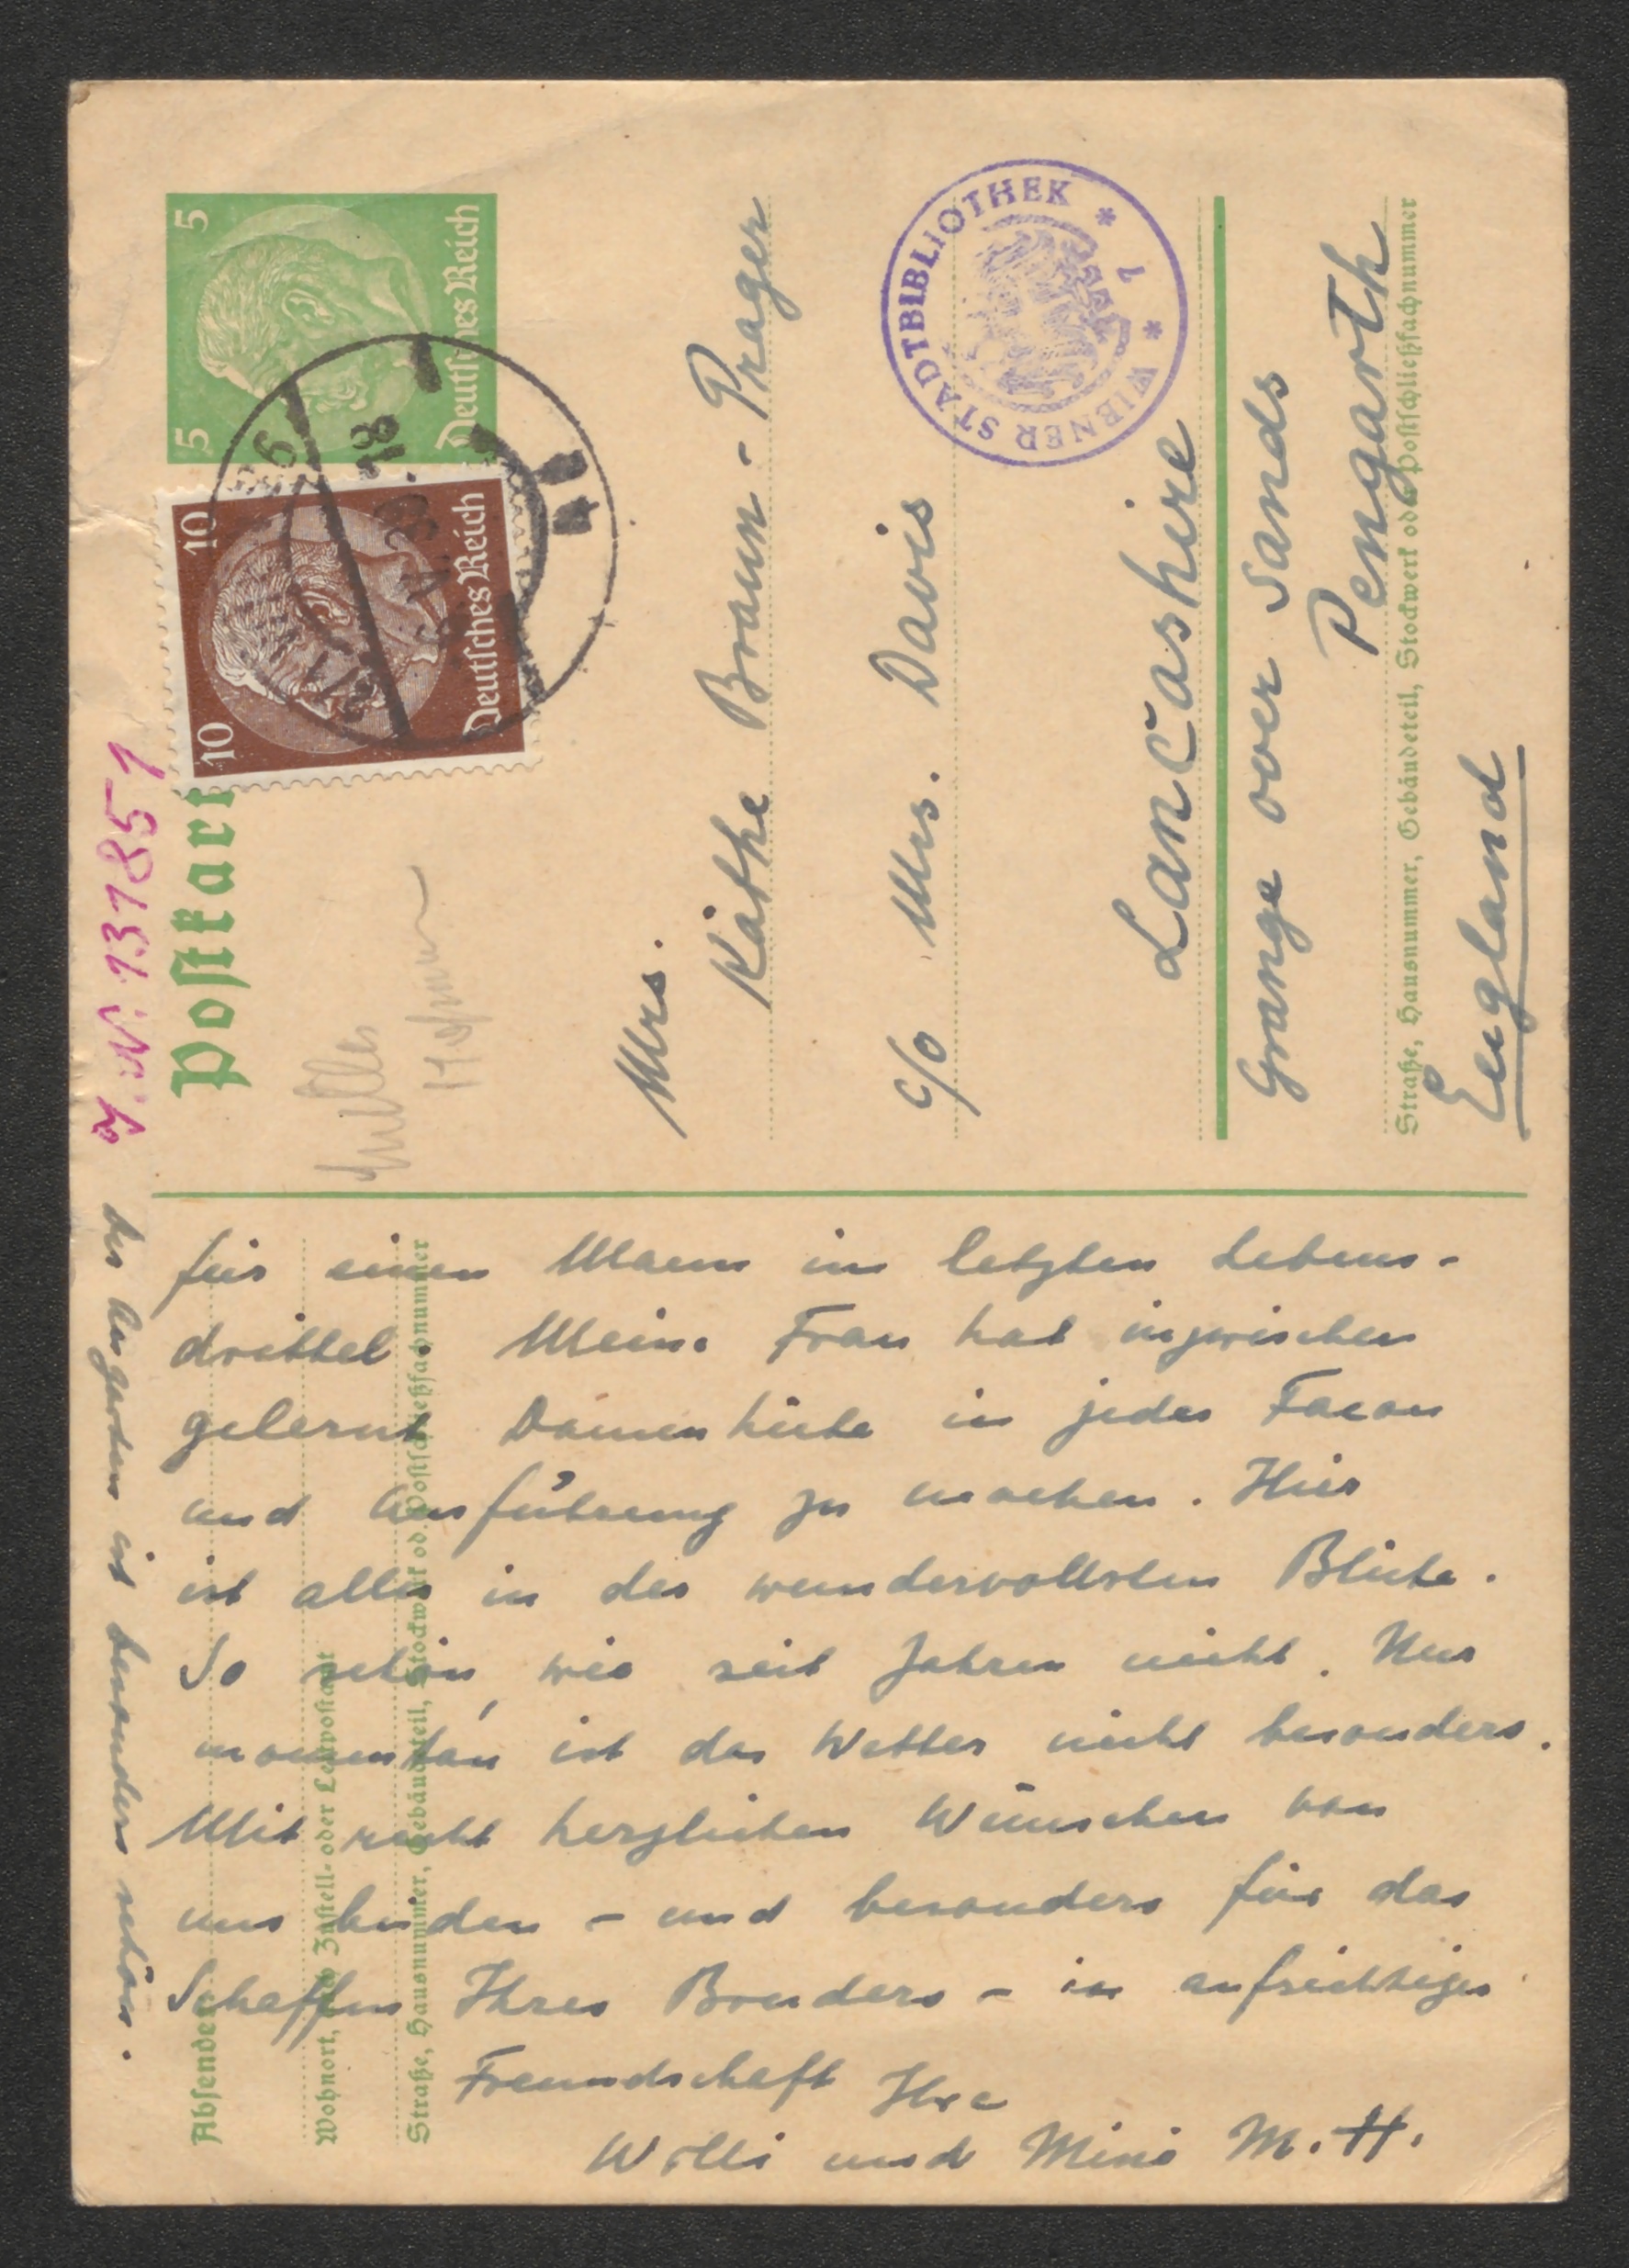 L.N. 137851
Postkart
5 5
Deutsches Reich
10 10
Deutsches Reich
9
18
Müller
Hofmann
Mrs.
Käthe Braun-Prager
c/o Mrs. Davis
Lancashire
Grange over Sands
Pengarth
Straße, Hausnummer, Gebäudeteil, Stockwerk oder Postschließfachnummer
England
WIENER STADTBIBLIOTHEK
1
für einen Mann im letzten Lebens-
drittel. Meine Frau hat inzwischen
gelernt Damenhüte in jeder Facon
und Ausführung zu machen. Hier
ist alles in der wundervollsten Blüte.
So schön, wie seit Jahren nicht. Nur
momentan ist das Wetter nicht besonders.
Mit recht herzlichen Wünschen von
uns beiden - und besonders für das
Schaffen Ihres Bruders - in aufrichtiger
Freundschaft Ihre
Willi und Mini M.H.
Der Augarten ist besonders schön.
Absender:
Wohnort, auch Zustell- oder Leitpostamt
Straße, Hausnummer, Gebäudeteil, Stockwerk od. Postschließfachnummer